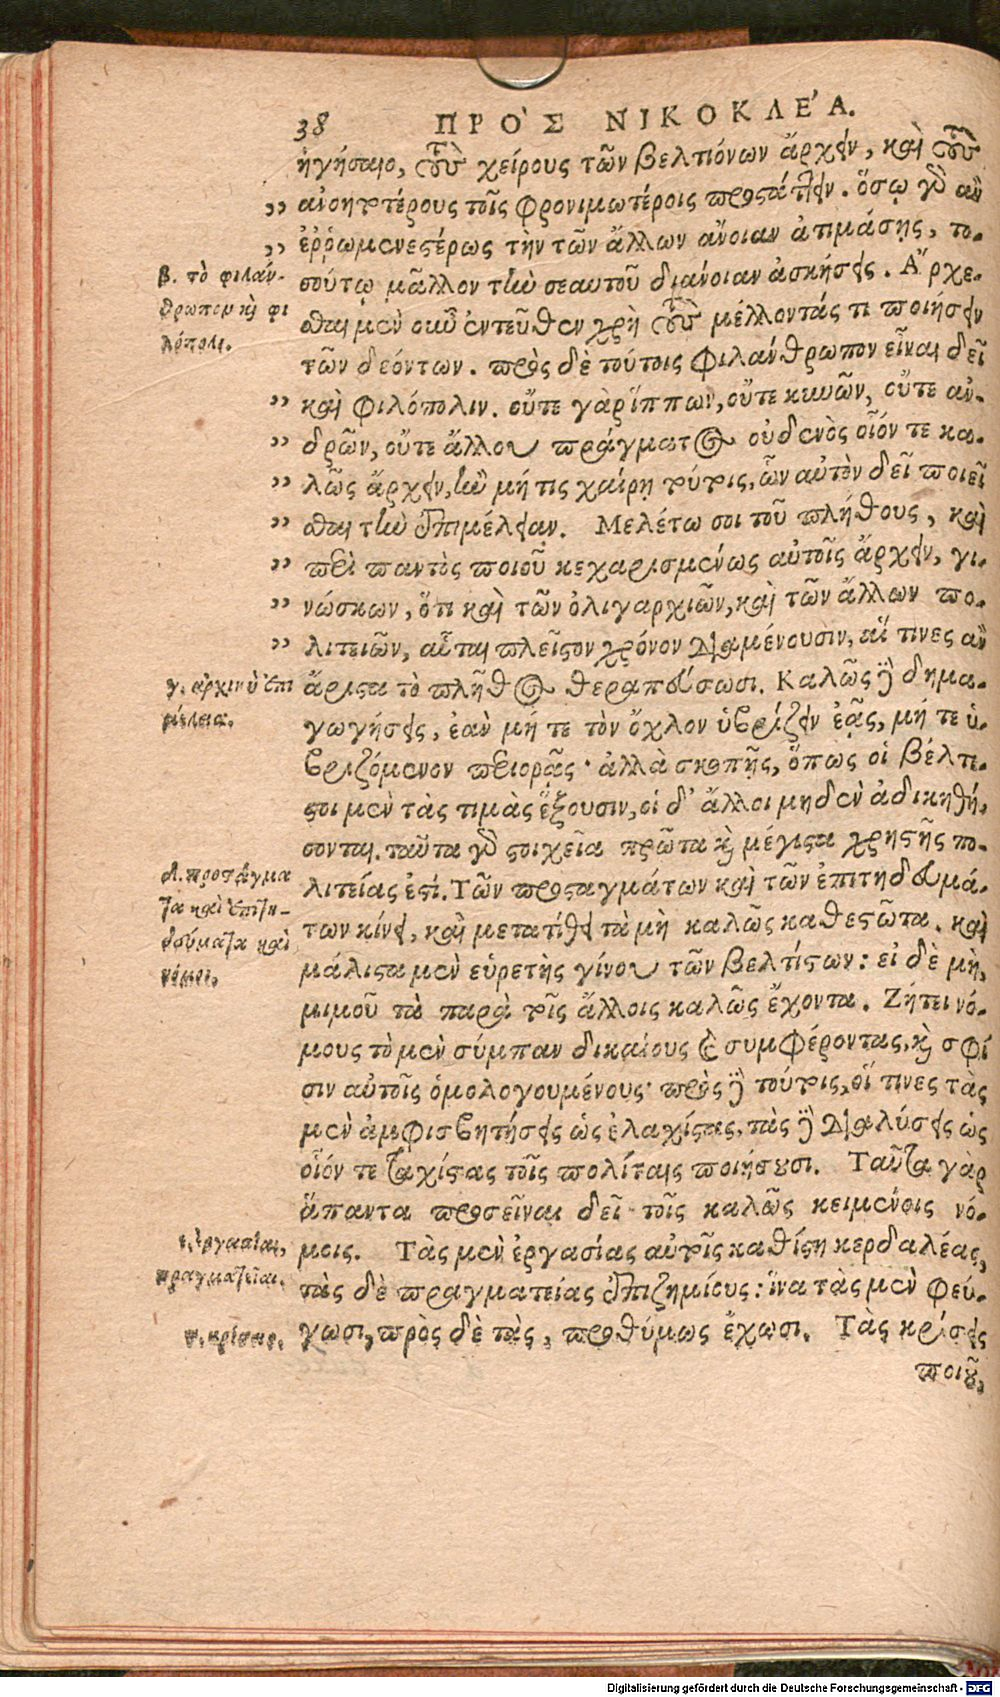 38 ΠΡΟ`Σ ΝΙΚΟΚΛΕ´Α.
ἡγήσαιο, τοὺς χείρους τῶν βελτιόνων ἄρχειν, καὶ τοὺς
ἀνοητοτέρους τοῖς φρονιμωτέροις προστάττειν. ὅσῳ γὰρ ἂν
ἐῤῥωμενεστέρως τὴν τῶν ἄλλων ἄνοιαν ἀτιμάσῃς, το-
σούτῳ μᾶλλον τὴν σεαυτοῦ διάνοιαν ἀσκήσεις. Ἄρχε-
σθαι μὲν οὖν ἐντεῦθεν χρὴ τοὺς μέλλοντάς τι ποιήσειν
τῶν δεόντων. πρὸς δὲ τούτοις φιλάνθρωπον εἶναι δεῖ
καὶ φιλόπολιν. οὔτε γὰρ ἵππων, οὔτε κυνῶν, οὔτε ἀν-
δρῶν, οὔτε ἄλλου πράγματος οὐδενὸς οἷόν τε κα-
λῶς ἄρχειν, ἢν μή τις χαίρῃ τούτοις, ὧν αὐτὸν δεῖ ποιεῖ
σθαι τὴν ἐπιμέλειαν. Μελέτω σοι τοῦ πλήθους, καὶ
περὶ παντὸς ποιοῦ κεχαρισμένως αὐτοῖς ἄρχειν, γι-
νώσκων, ὅτι καὶ τῶν ὀλιγαρχιῶν, καὶ τῶν ἄλλων πο-
λιτειῶν, αὗται πλεῖστον χρόνον διαμένουσιν, αἵ τινες ἂν
ἄριστα τὸ πλῆθος θεραπεύσωσι. Καλῶς δὲ δημα-
γωγήσεις, ἐὰν μή τε τὸν ὄχλον ὑβρίζειν ἐᾷς, μή τε ὑ-
βριζόμενον περιορᾷς· ἀλλὰ σκοπῇς, ὅπως οἱ βέλτι-
στοι μὲν τὰς τιμὰς ἕξουσιν, οἱ δ' ἄλλοι μηδὲν ἀδικηθή-
σονται. ταῦτα γὰρ στοιχεῖα πρῶτα καὶ μέγιστα χρηστῆς πο-
λιτείας ἐστί. Τῶν προσταγμάτων καὶ τῶν ἐπιτηδευμά-
των κίνει, καὶ μετατίθει τὰ μὴ καλῶς καθεστῶτα. καὶ
μάλιστα μὲν εὑρετὴς γίνου τῶν βελτίστων: εἰ δὲ μὴ,
μιμοῦ τὰ παρὰ τοῖς ἄλλοις καλῶς ἔχοντα. Ζήτει νό-
μους τὸ μὲν σύμπαν δικαίους καὶ συμφέροντας, καὶ σφί
σιν αὐτοῖς ὁμολογουμένους· πρὸς δὲ τούτοις, οἵ τινες τὰς
μὲν ἀμφισβητήσεις ὡς ἐλαχίστας, τὰς δὲ διαλύσεις ὡς
οἷόν τε ταχίστας τοῖς πολίταις ποιήσουσι. Ταῦτα γὰρ
ἅπαντα προσεῖναι δεῖ τοῖς καλῶς κειμένοις νό-
μοις. Τὰς μὲν ἐργασίας αὐτοῖς καθίστη κερδαλέας,
τὰς δὲ πραγματείας ἐπιζημίους: ἵνα τὰς μὲν φεύ-
γωσι, πρὸς δὲ τὰς, προθύμως ἔχωσι. Τὰς κρίσεις
ποιοῦ,
„
„
β. τὸ φιλάν-
θρωπον καὶ φι
λόπολι.
„
„
„
„
„
„
„
γ. ἀρχικὴ ἐπι
μέλεια.
δ. προστάγμα
τα καὶ ἐπιτη-
δεύματα καὶ
νόμοι.
ε. ἐργασίαι,
πραγματεῖαι.
ϛ. κρίσεις.
Digitalisierung gefördert durch die Deutsche Forschungsgemeinschaft - DFG